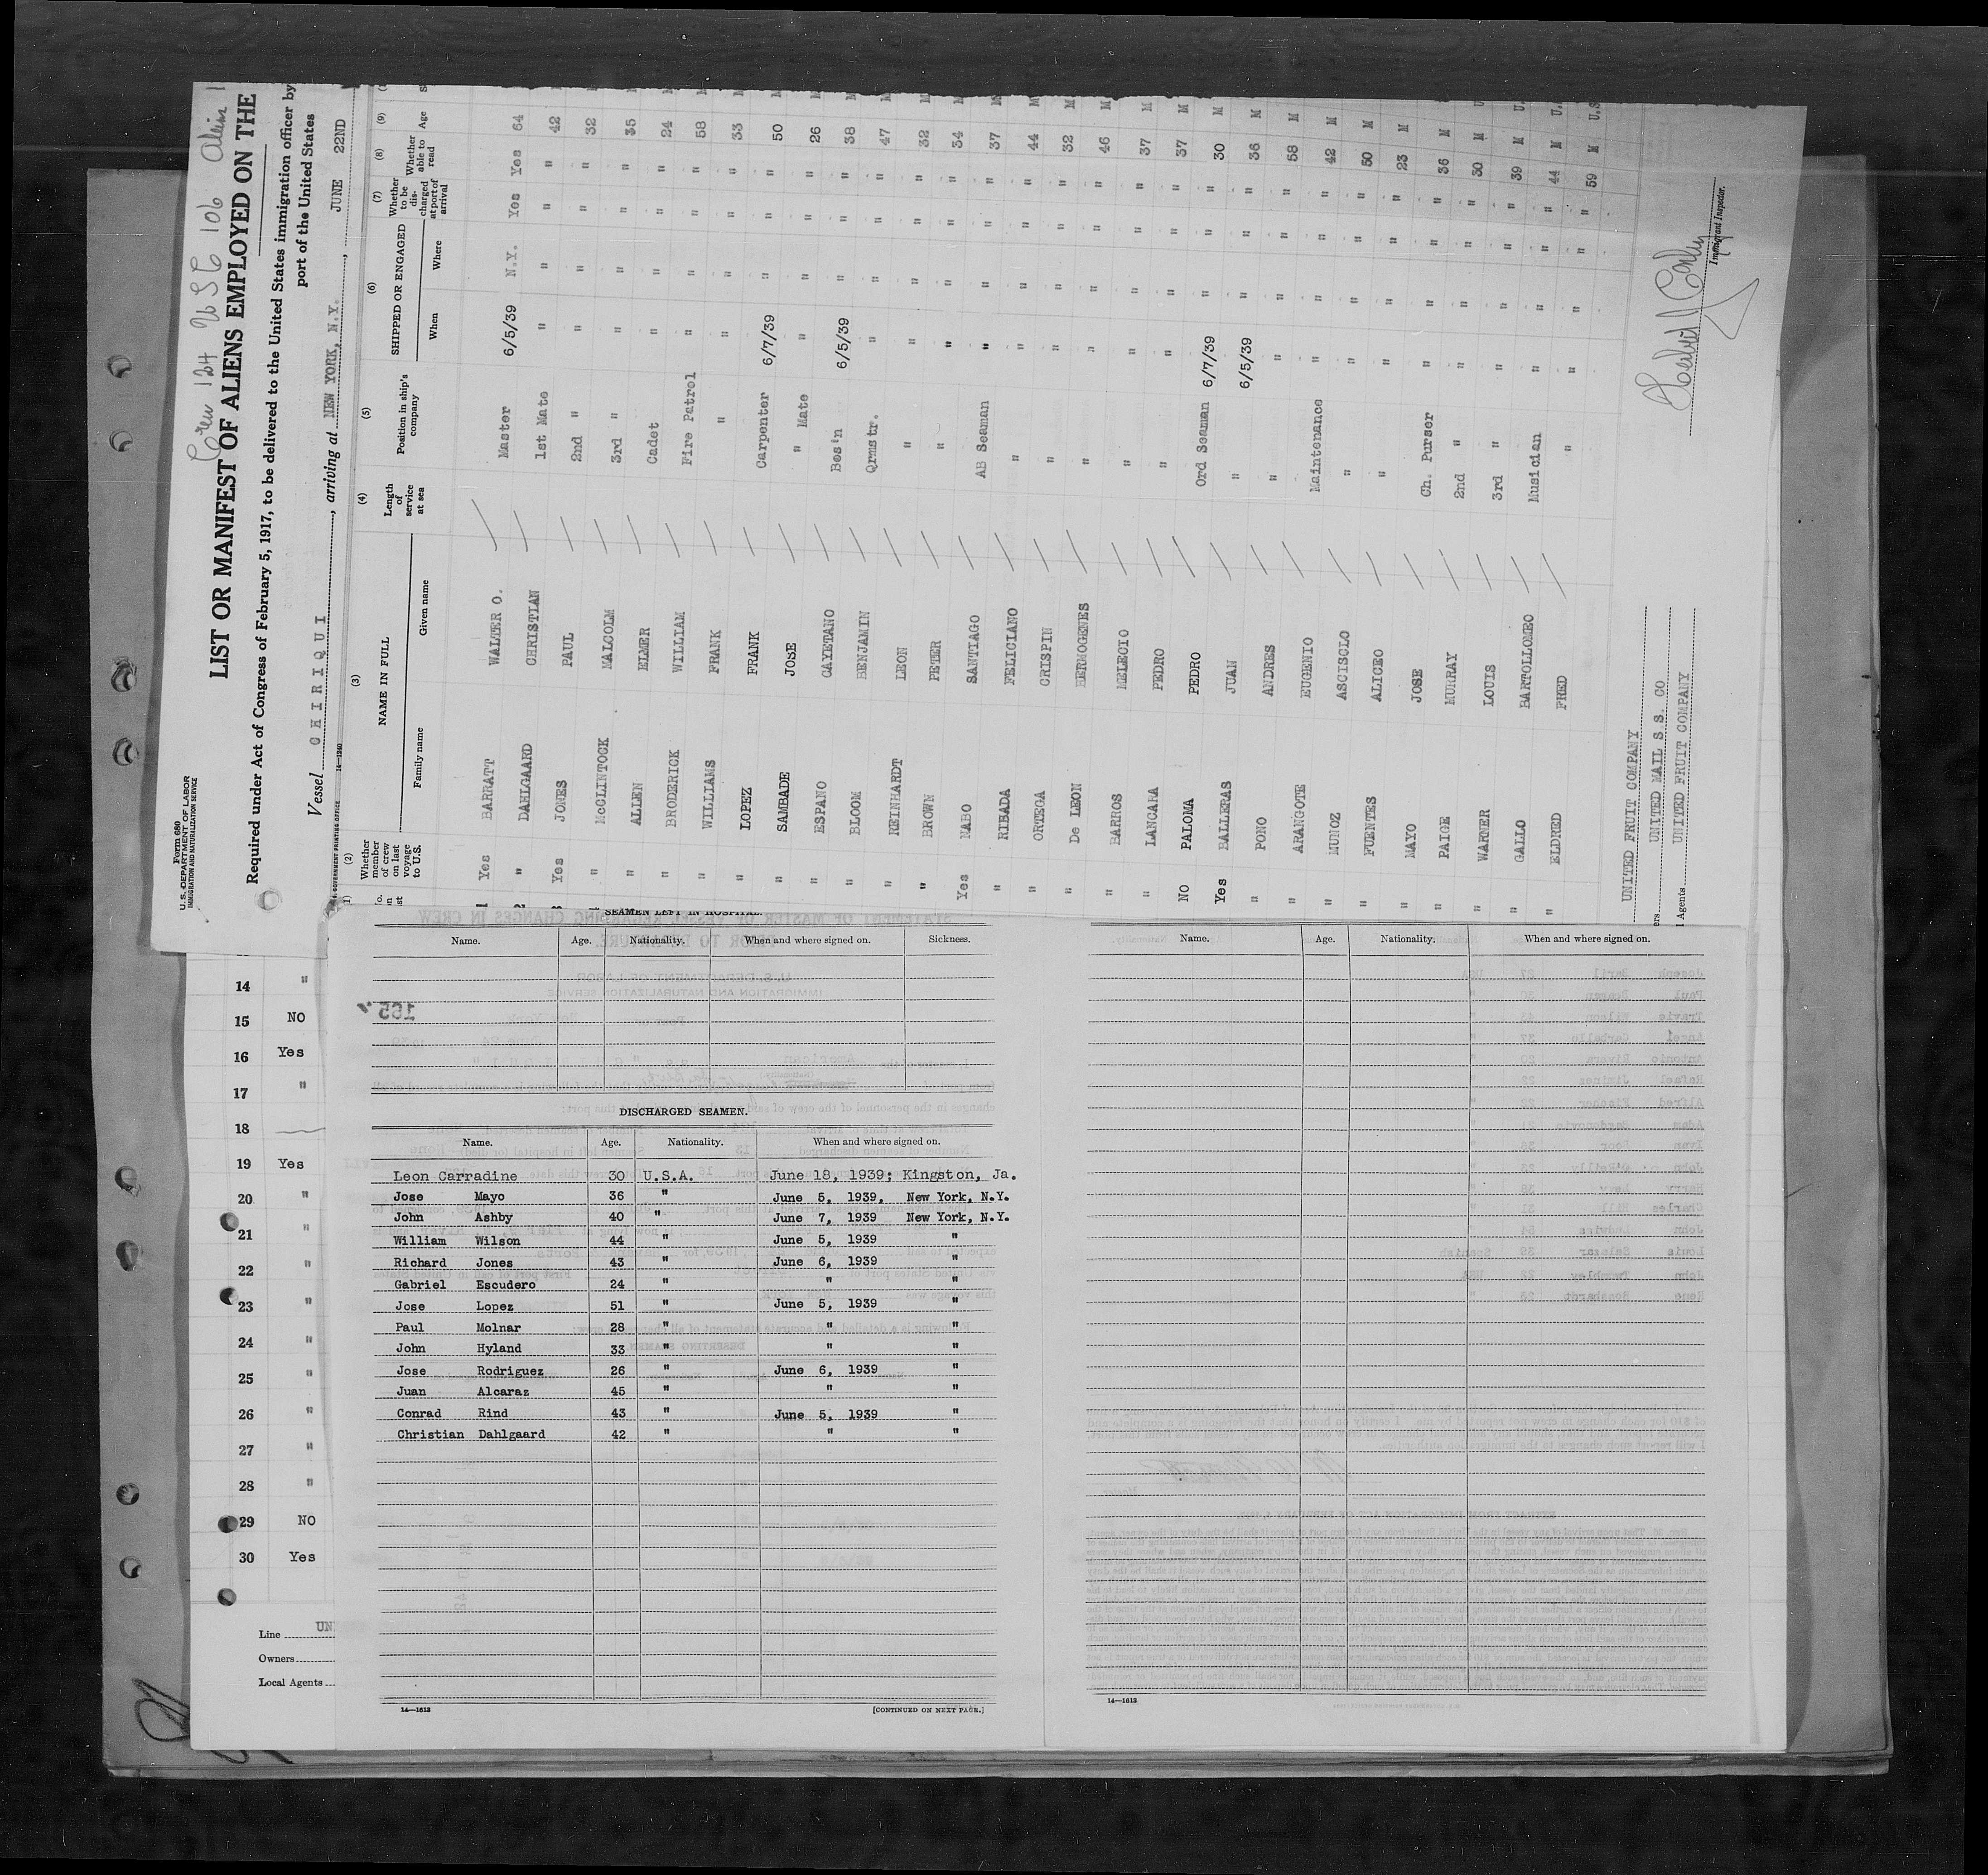 Crew 124 USC 106 Alien 1
Form 680
U.S. DEPARTMENT OF LABOR
IMMIGRATION AND NATURALIZATION SERVICE
LIST OR MANIFEST OF ALIENS EMPLOYED ON THE
Required under Act of Congress of February 5, 1917, to be delivered to the United States immigration officer by
port of the United States
Vessel CHIRIQUI, arriving at NEW YORK, N.Y., JUNE 22ND
GOVERNMENT PRINTING OFFICE 14—1240
(2) (3) (4) (5) (6) (7) (8) (9)
Whether member of crew on last voyage to U.S. NAME IN FULL Length of service at sea Position in ship's company SHIPPED OR ENGAGED Whether to be discharged at port of arrival Whether able to read Age
Family name Given name When Where
1 Yes BARRATT WALTER O. Master 6/5/39 N.Y. Yes Yes 64
" DAHLGAARD CHRISTIAN 1st Mate " " " " 42
Yes JONES PAUL 2nd " " " " " 32
" McCLINTOCK MALCOLM 3rd " " " " " 35
" ALLEN ELMER Cadet " " " " 24
" BRODERICK WILLIAM Fire Patrol " " " " 58
" WILLIAMS FRANK " " " " " 33
" LOPEZ FRANK Carpenter 6/7/39 " " " 50
" SAMBADE JOSE " Mate " " " " 26
" ESPANO CAYETANO Bos'n 6/5/39 " " " 38
" BLOOM BENJAMIN Qrmstr. " " " " 47
" REINHARDT LEON " " " " " 32
" BROWN PETER " " " " " 34
Yes NABO SANTIAGO AB Seaman " " " " 37
" RIBADA FELICIANO " " " " " 44
" ORTEGA CRISPIN " " " " " 32
" De LEON HERMOGENES " " " " " 46
" BARROS MELECIO " " " " " 37 M
" LANCARA PEDRO " " " " " 37 M
NO PALOMA PEDRO Ord Seaman 6/7/39 " " " 30 M
Yes BALLERAS JUAN " 6/5/39 " " " 36 M
" PONO ANDRES " " " " " 58 M
" ARANGOTE EUGENIO Maintenance " " " " 42 M
" MUNOZ ASCISCLO " " " " " 50 M
" FUENTES ALICEO " " " " " 23 M
" MAYO JOSE Ch. Purser " " " " 36 M
" PAIGE MURRAY 2nd " " " " " 30 M
" WARNER LOUIS 3rd " " " " " 39 M
" GALLO BARTOLLOMEO Musician " " " " 44 M
" ELDRED FRED " " " " " 59 M U.S
Immigrant Inspector.
UNITED FRUIT COMPANY
UNITED MAIL S S. CO
Agents UNITED FRUIT COMPANY
14 "
15 NO
16 Yes
17 "
18
19 Yes
20 "
21 "
22 "
23 "
24 "
25 "
26 "
27 "
28 "
29 NO
30 Yes
Line UN
Owners
Local Agents
SEAMEN LEFT IN HOSPITAL.
Name. Age. Nationality. When and where signed on. Sickness.
DISCHARGED SEAMEN.
Name. Age. Nationality. When and where signed on.
Leon Carradine 30 U.S.A. June 18, 1939; Kingston, Ja.
Jose Mayo 36 " June 5, 1939, New York, N.Y.
John Ashby 40 " June 7, 1939 New York, N.Y.
William Wilson 44 " June 5, 1939 "
Richard Jones 43 " June 6, 1939 "
Gabriel Escudero 24 " " "
Jose Lopez 51 " June 5, 1939 "
Paul Molnar 28 " " "
John Hyland 33 " " "
Jose Rodriguez 26 " June 6, 1939 "
Juan Alcaraz 45 " " "
Conrad Rind 43 " June 5, 1939 "
Christian Dahlgaard 42 " " "
14—1613
[CONTINUED ON NEXT PAGE.]
Name. Age. Nationality. When and where signed on.
14—1613